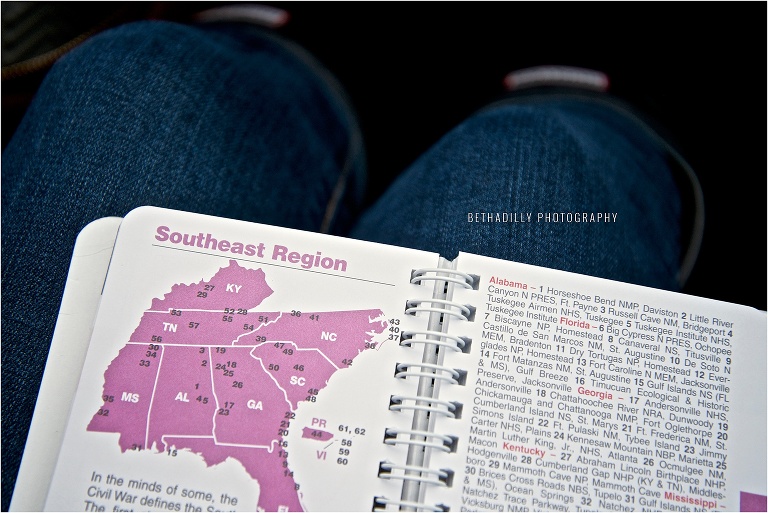 BETHADILLY PHOTOGRAPHY
Southeast Region
KY
27
29
53
52 28
55
51
54
36 41
TN
57
NC
39
47
49
43
40
38
37
42
56
30
34
33
3
19
2
24
18
25
50
SC
26
48
45
MS
AL
GA
1
4 5
17
23
35
32
22
21
20
31
15
PR
44
61, 62
58
59
60
VI
In the minds of some, the
Civil War defines the
The first
Alabama – 1 Horseshoe Bend NMP, Daviston 2 Little River
Canyon N PRES, Ft. Payne 3 Russell Cave NM, Bridgeport 4
Tuskegee Airmen NHS, Tuskegee 5 Tuskegee Institute NHS,
Tuskegee Institute Florida – 6 Big Cypress N PRES, Ochopee
7 Biscayne NP, Homestead 8 Canaveral NS, Titusville 9
Castillo de San Marcos NM, St. Augustine 10 De Soto N
MEM, Bradenton 11 Dry Tortugas NP, Homestead 12 Ever-
glades NP, Homestead 13 Fort Caroline N MEM, Jacksonville
14 Fort Matanzas NM, St. Augustine 15 Gulf Islands NS (FL
& MS), Gulf Breeze 16 Timucuan Ecological & Historic
Preserve, Jacksonville Georgia – 17 Andersonville NHS,
Andersonville 18 Chattahoochee River NRA, Dunwoody 19
Chickamauga and Chattanooga NMP, Fort Oglethorpe 20
Cumberland Island NS, St. Marys 21 Ft. Frederica NM, St.
Simons Island 22 Ft. Pulaski NM, Tybee Island 23 Jimmy
Carter NHS, Plains 24 Kennesaw Mountain NBP, Marietta 25
Martin Luther King, Jr., NHS, Atlanta 26 Ocmulgee NM,
Macon Kentucky – 27 Abraham Lincoln Birthplace NHP,
Hodgenville 28 Cumberland Gap NHP (KY & TN), Middles-
boro 29 Mammoth Cave NP, Mammoth Cave Mississippi –
30 Brices Cross Roads NBS, Tupelo 31 Gulf Islands NS (FL
& MS), Ocean Springs 32 Natchez
Natchez Trace Parkway, Tupelo
Vicksburg NMP